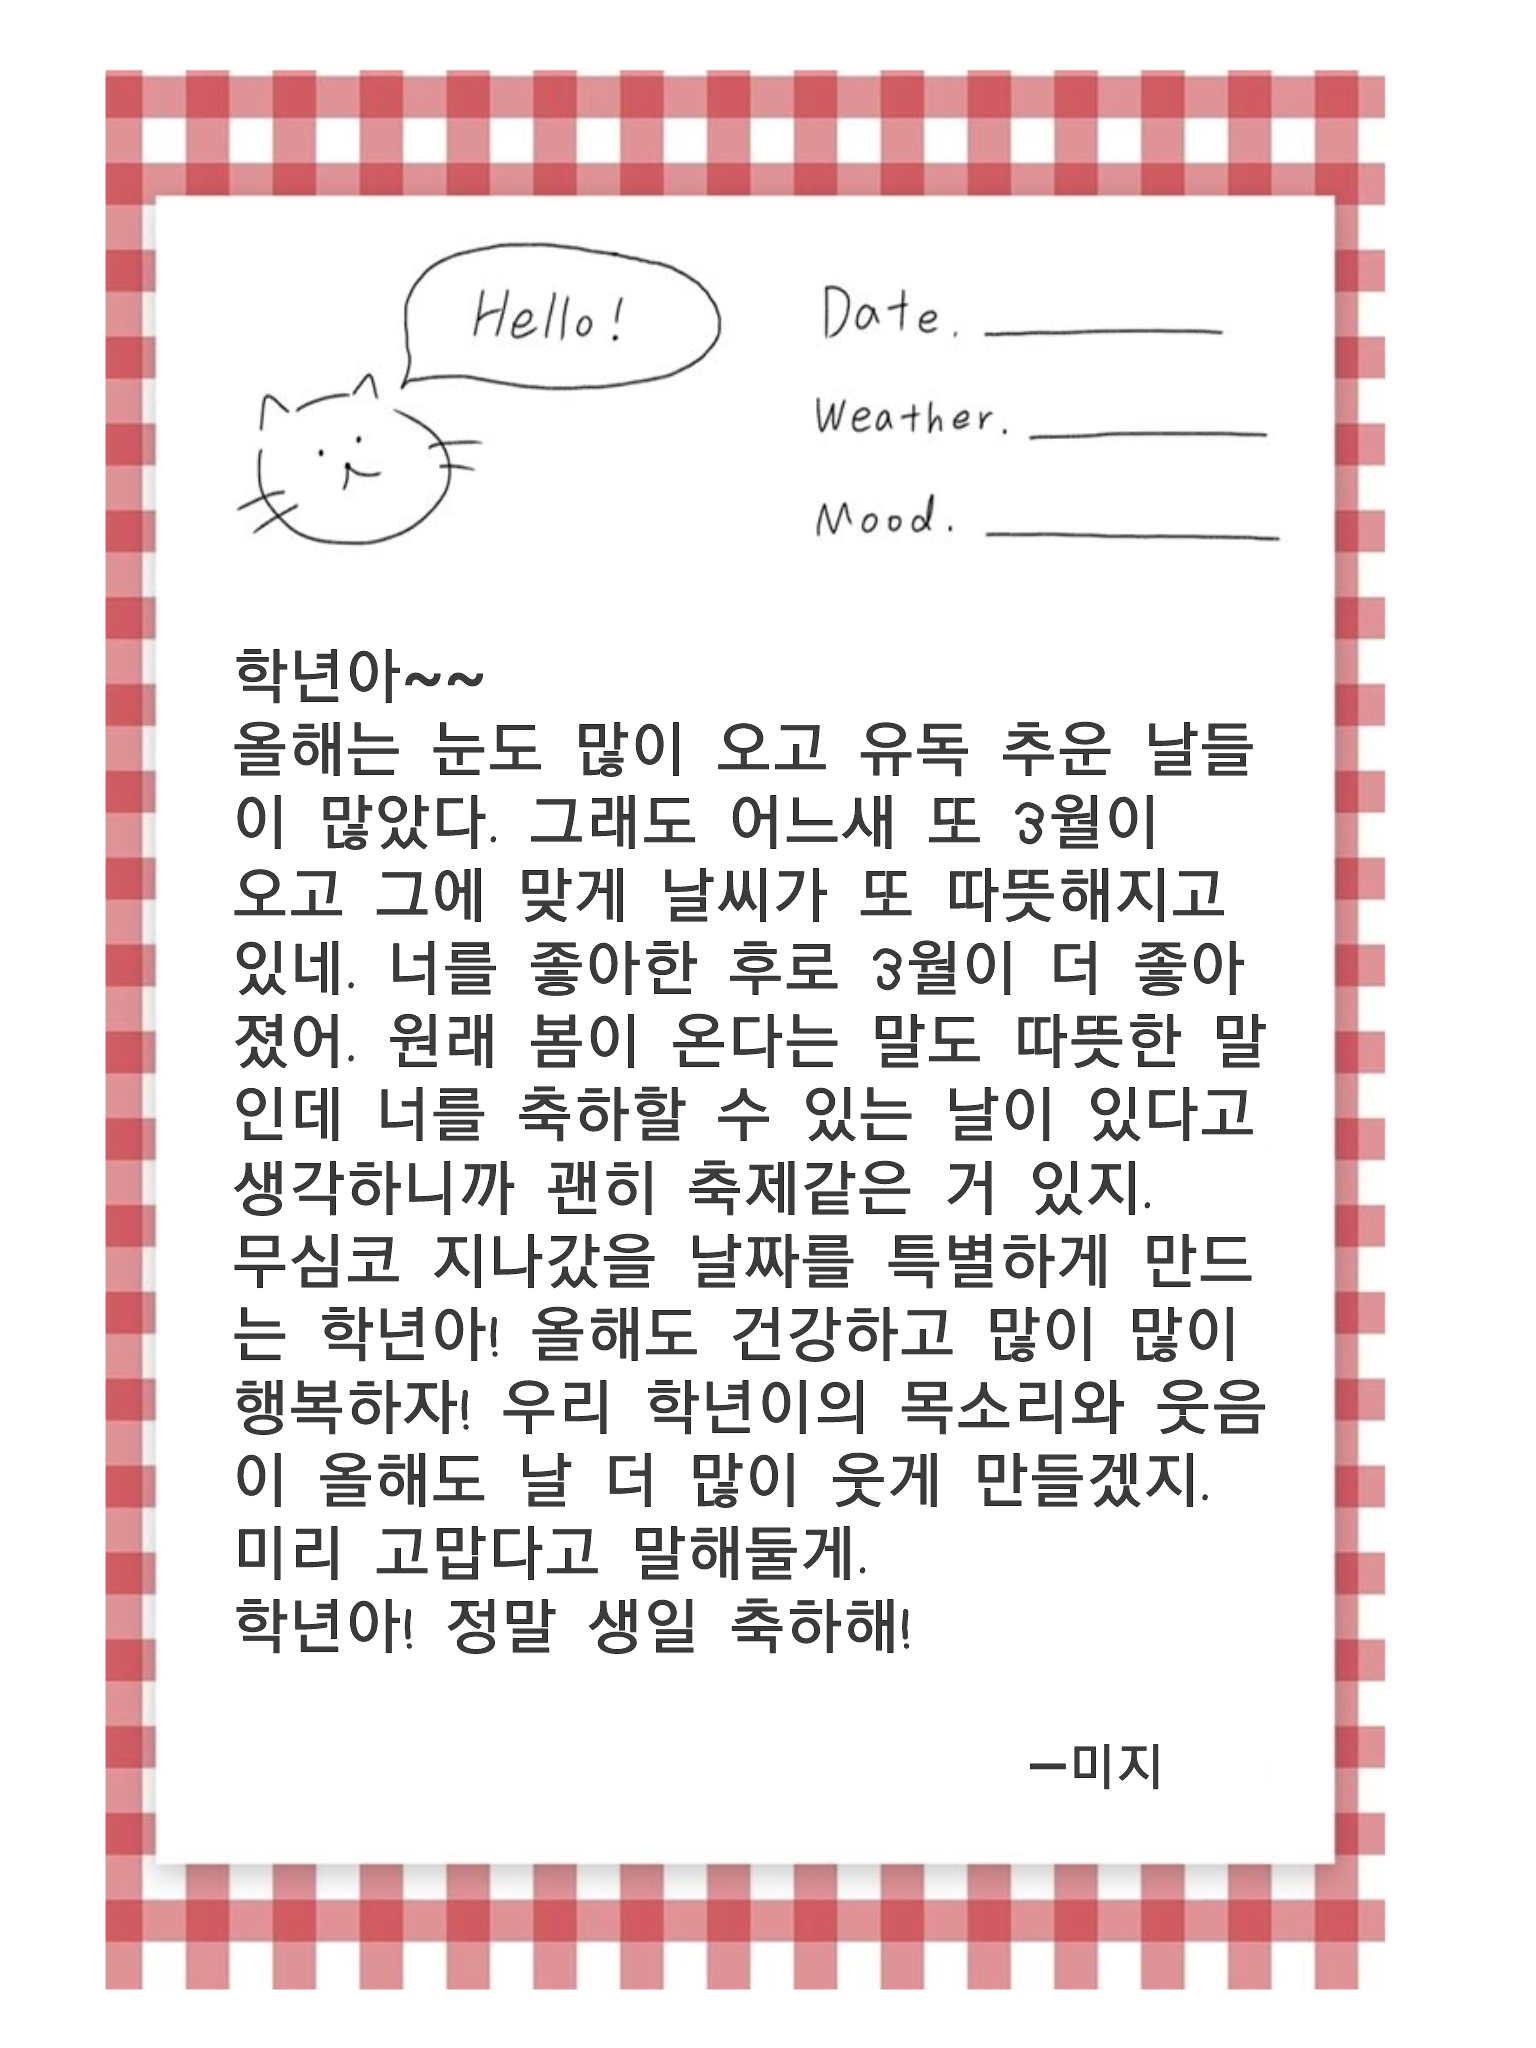 Hello!
Date.
Weather.
Mood.
학년아~~
올해는 눈도 많이 오고 유독 추운 날들
이 많았다. 그래도 어느새 또 3월이
오고 그에 맞게 날씨가 또 따뜻해지고
있네. 너를 좋아한 후로 3월이 더 좋아
졌어. 원래 봄이 온다는 말도 따뜻한 말
인데 너를 축하할 수 있는 날이 있다고
생각하니까 괜히 축제같은 거 있지.
무심코 지나갔을 날짜를 특별하게 만드
는 학년아! 올해도 건강하고 많이 많이
행복하자! 우리 학년이의 목소리와 웃음
이 올해도 날 더 많이 웃게 만들겠지.
미리 고맙다고 말해둘게.
학년아! 정말 생일 축하해!
-미지